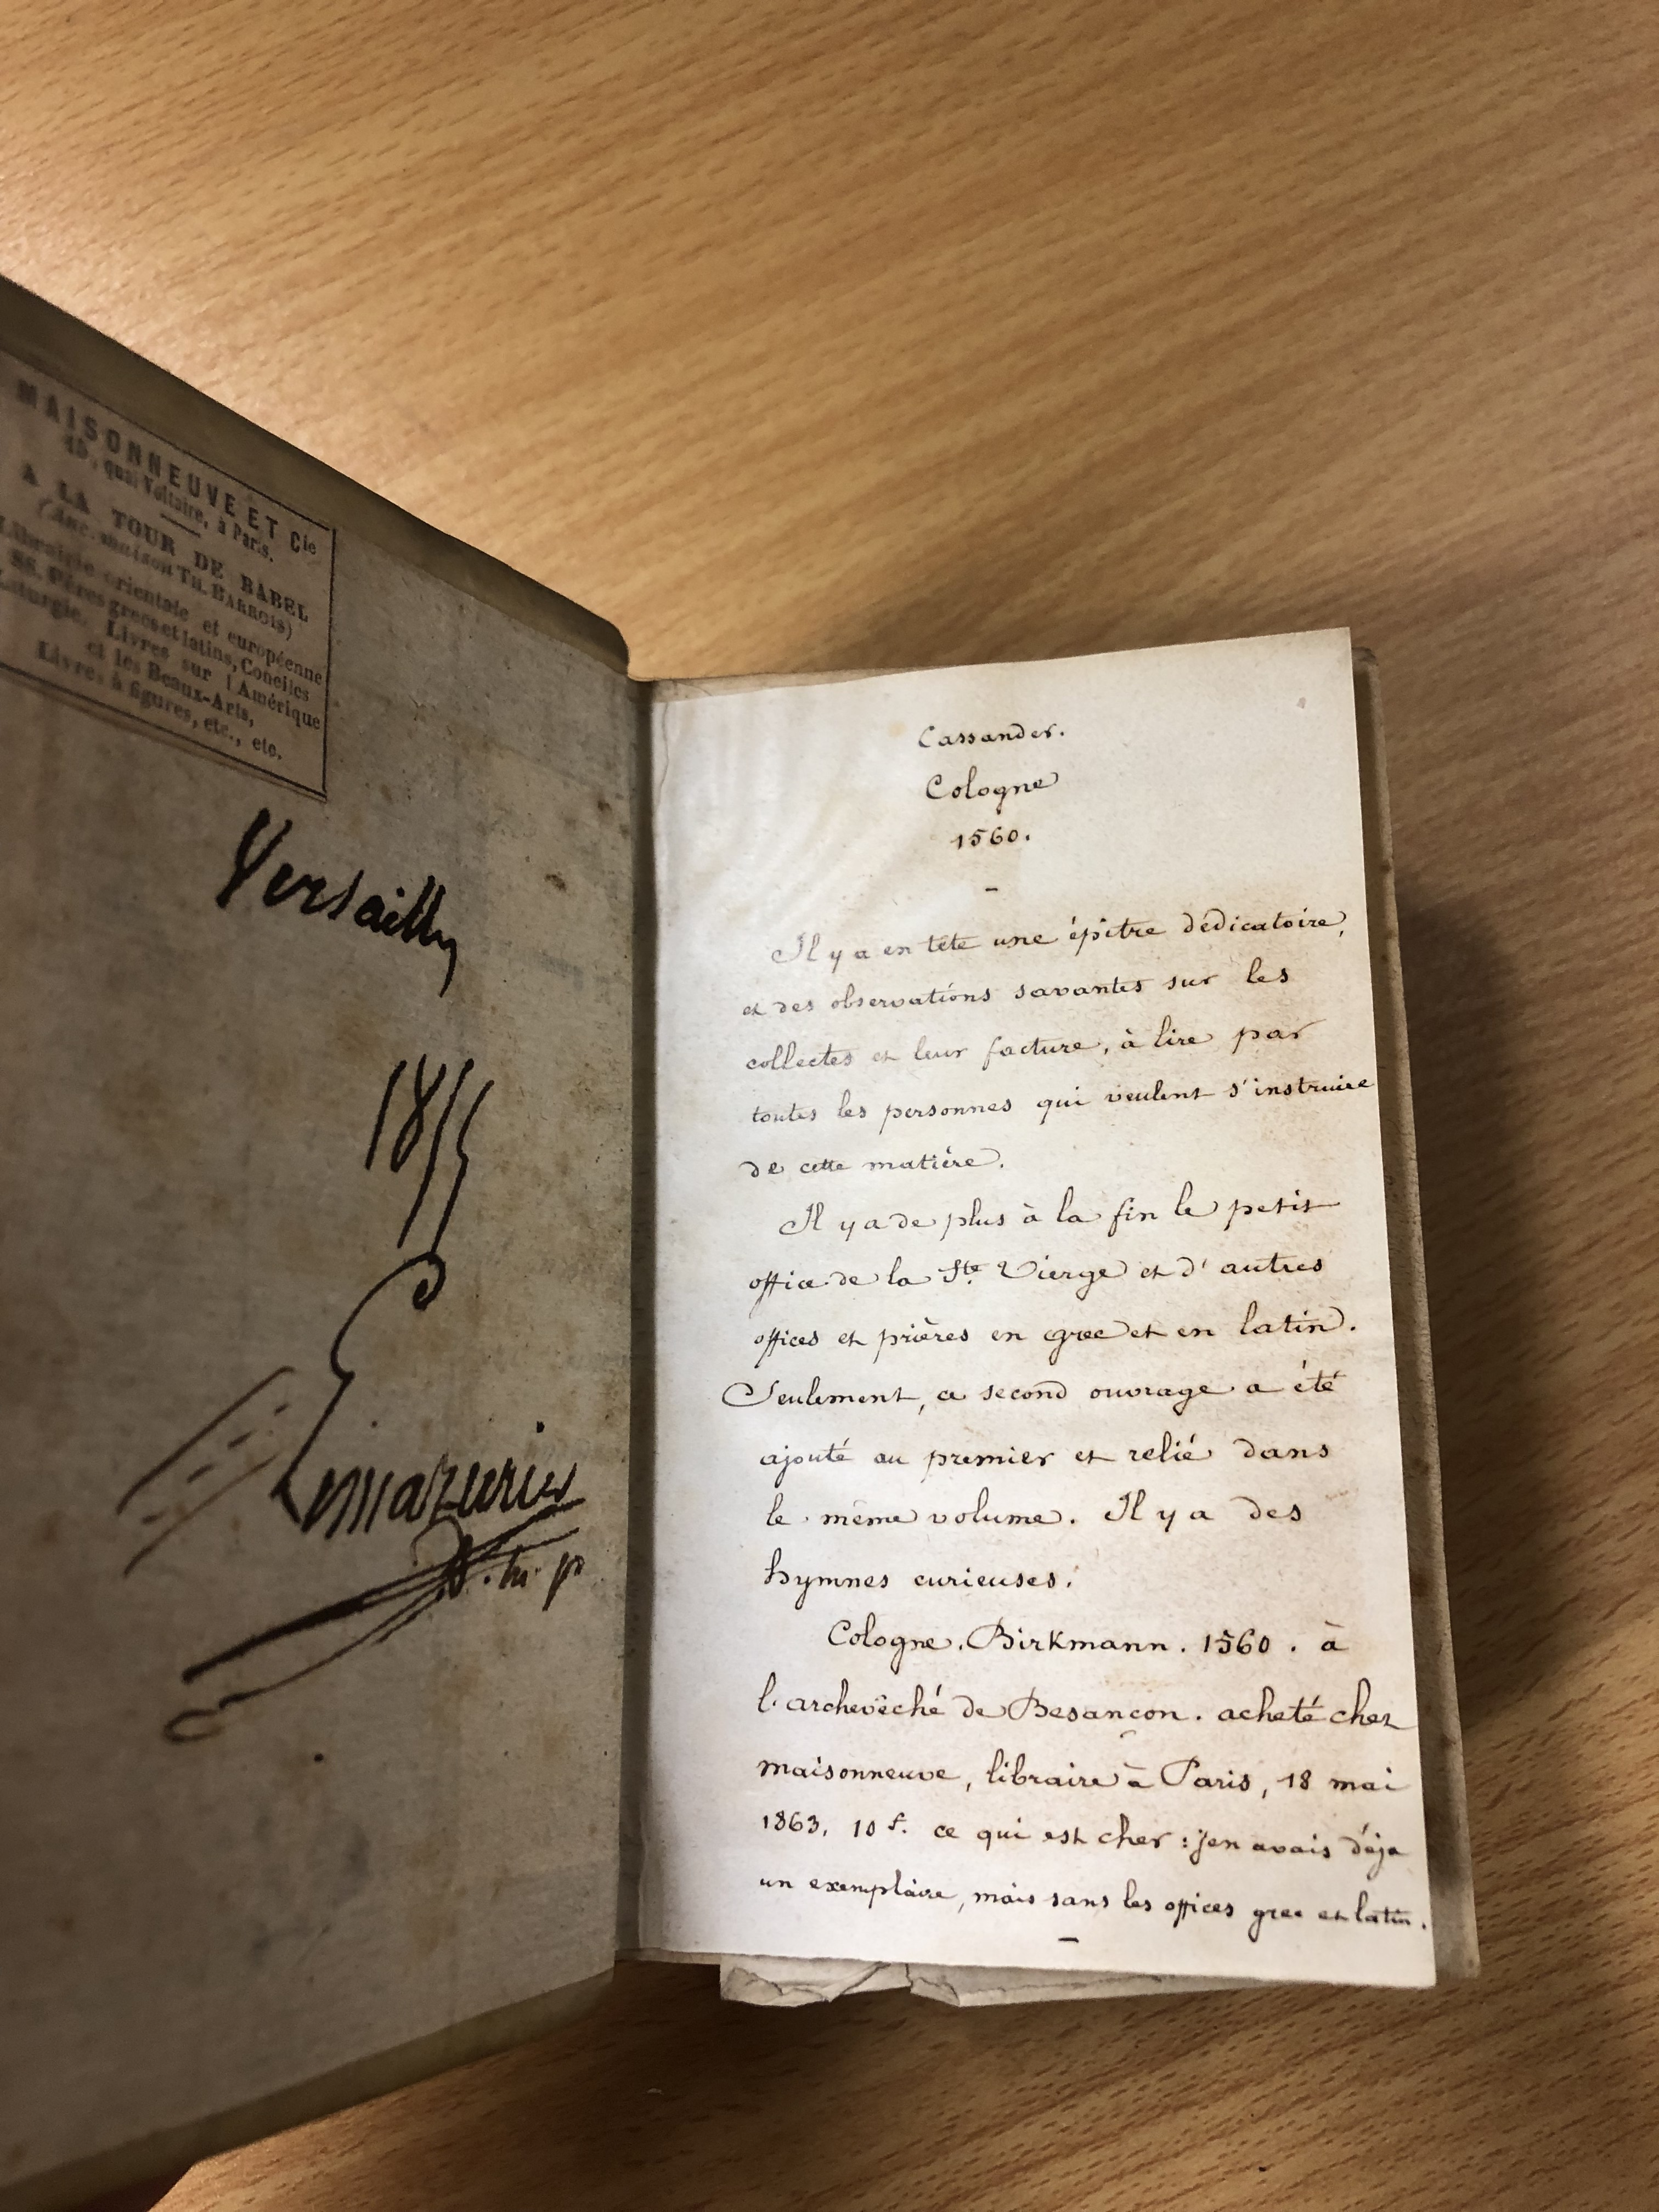 MAISONNEUVE ET Cie
15, quai Voltaire, à Paris.
A LA TOUR DE BABEL
(Anc. maison TH. BARROIS)
Librairie orientale et européenne
SS. Pères grecs et latins, Conciles
Liturgie, Livres sur l'Amérique
et les Beaux-Arts,
Livres à figures, etc., etc.
Versailly
1855
Lemazurier
Cassander.
Cologne
1560.
-
Il y a en tête une épitre dédicatoire,
et des observations savantes sur les
collectes et leur facture, à lire par
toutes les personnes qui veulent s'instruire
de cette matière.
Il y a de plus à la fin le petit
office de la Ste. Vierge et d'autres
offices et prières en grec et en latin.
Seulement, ce second ouvrage a été
ajouté au premier et relié dans
le même volume. Il y a des
hymnes curieuses.
Cologne. Birkmann. 1560. à
l'archevêché de Besançon. acheté chez
maisonneuve, libraire à Paris, 18 mai
1863. 10 f. ce qui est cher : j'en avais déja
un exemplaire, mais sans les offices grec et latin.
-